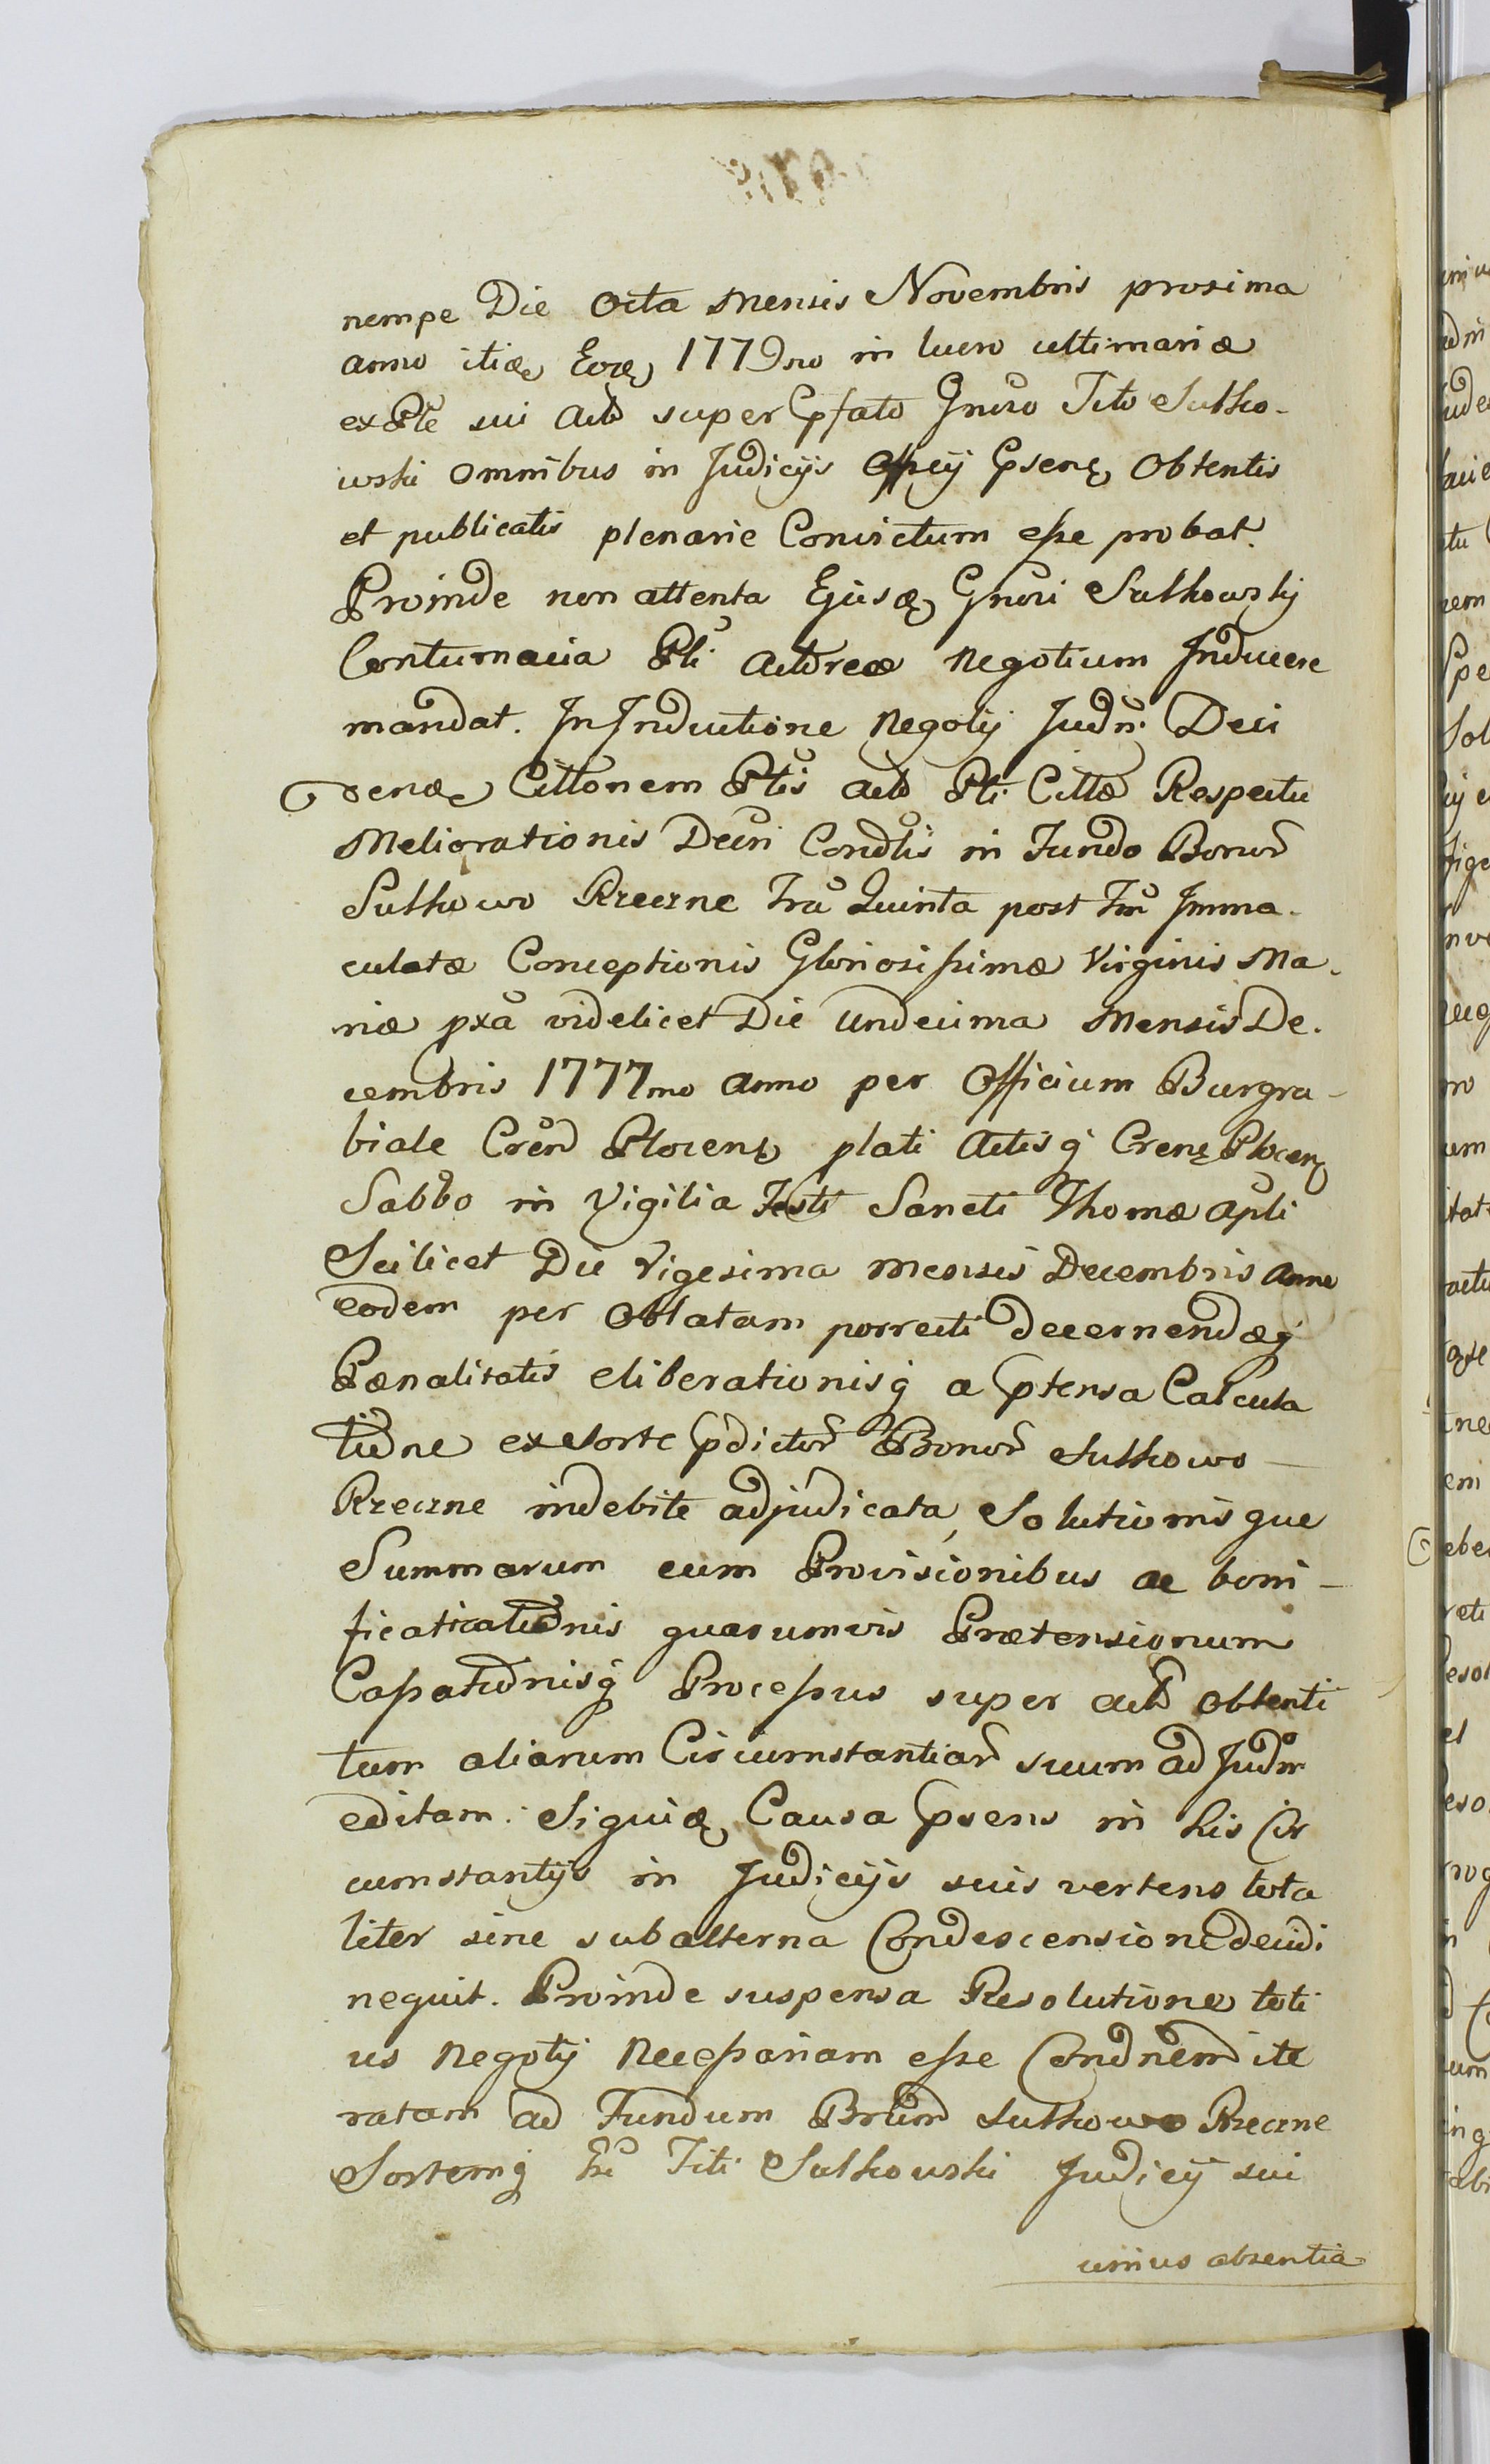 nempe Die Octa Mensis Novembris proxima
anno itidę Eodę 1779no in lucro ultimaria
ex Pte sui Actõ super Ppfato Gnõso Tito Sutko-
wski omnibus in Judicijs Offcij Ppsenę Obtentis
et publicatis plenarie Convictum eſse probat.
Proinde non attenta Ejusdę Gnõsi Sutkowskij
Contumacia Pti Actoreæ Negotium Inducere
mandat. In Inductione Negotij Judm̃ Deci
denę Cittonem Ptis Actõ Pti Citta Respectu
Meliorationis Decri Condtis in Fundo Bonor̃
Sutkowo Rzeczne Fra Quinta post Fm̃ Imma-
culatæ Conceptionis Glorioſiſsimæ Virginis Ma-
riæ pxã videlicet Die Undecima Mensis De-
cembris 1777mo Anno per Officium Burgra-
biale Cren̄ Plocenę plati Actisq̃ Crenę Plocenę
Sabbo in Vigilia Festi Sancti Thomæ Apli
Scilicet Die Vigesima mensis Decembris Anno
eodem per Oblatam porrecti decernendæq̃
Pænalitatis eliberationisq̃ a Pptensa Calcula
tione ex Sorte Ppdictor̃ Bonor̃ Sutkowo
Rzeczne indebite adjudicata, Solutionisque
Summarum cum Provisionibus ac boni-
ficaticationis quarumvis Prætensionum
Caſsationisq̃ Proceſsus super Actõ Obtenti
tum aliarum Circumstantiar̃ suum ad Judm
editam. Siquidę Causa Ppsens in his Cir
cumstantijs in Judicijs suis vertens tota
liter sine subalterna Condescensione decidi
nequit. Proinde suspensa Resolutione toti
us Negotij Neceſsariam eſse Condnem̃ ite
ratam ad Fundum Brum̃ Sutkowo Rzeczne
Sortemq̃ Titi Sutkowski Judicij sui
unius absentia